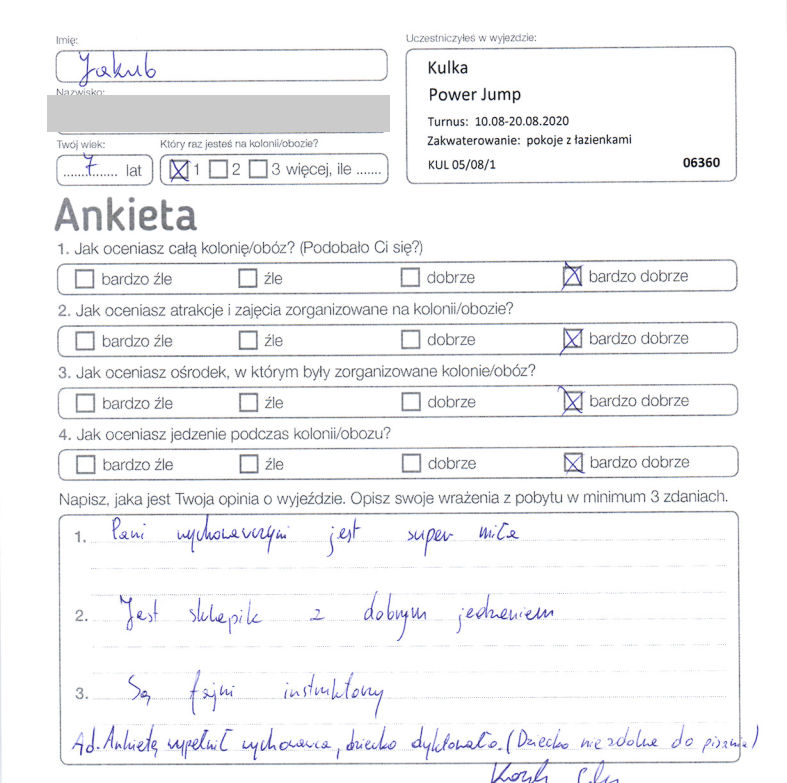 Imię:
Uczestniczyłeś w wyjeździe:
Jakub
Kulka
Nazwisko:
Power Jump
Turnus: 10.08-20.08.2020
Twój wiek:
Który raz jesteś na kolonii/obozie?
Zakwaterowanie: pokoje z łazienkami
.....7....... lat
1 2 3 więcej, ile .......
KUL 05/08/1
06360
Ankieta
1. Jak oceniasz całą kolonię/obóz? (Podobało Ci się?)
bardzo źle źle dobrze bardzo dobrze
2. Jak oceniasz atrakcje i zajęcia zorganizowane na kolonii/obozie?
bardzo źle źle dobrze bardzo dobrze
3. Jak oceniasz ośrodek, w którym były zorganizowane kolonie/obóz?
bardzo źle źle dobrze bardzo dobrze
4. Jak oceniasz jedzenie podczas kolonii/obozu?
bardzo źle źle dobrze bardzo dobrze
Napisz, jaka jest Twoja opinia o wyjeździe. Opisz swoje wrażenia z pobytu w minimum 3 zdaniach.
1. Pani wychowawczyni jest super miła
2. Jest sklepik z dobrym jedzeniem
3. Są fajni instruktorzy
Ad. Ankietę wypełnił wychowawca, dziecko dyktowało. (Dziecko niezdolne do pisania)